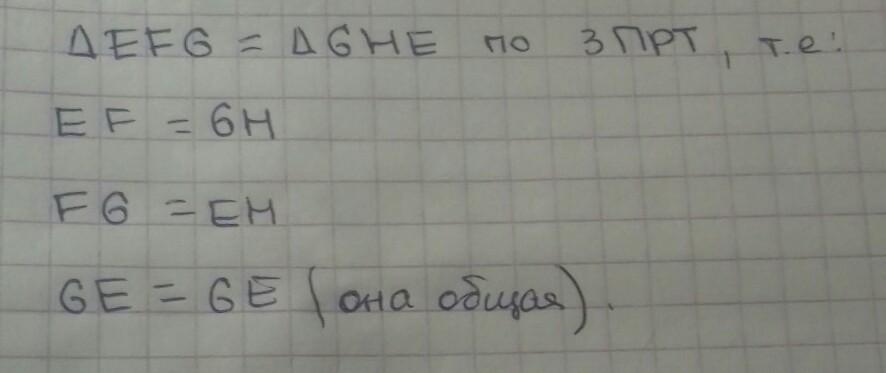 ΔEFG = ΔGHE по 3 ПРТ, т.е:
EF = GH
FG = EH
GE = GE (она общая).